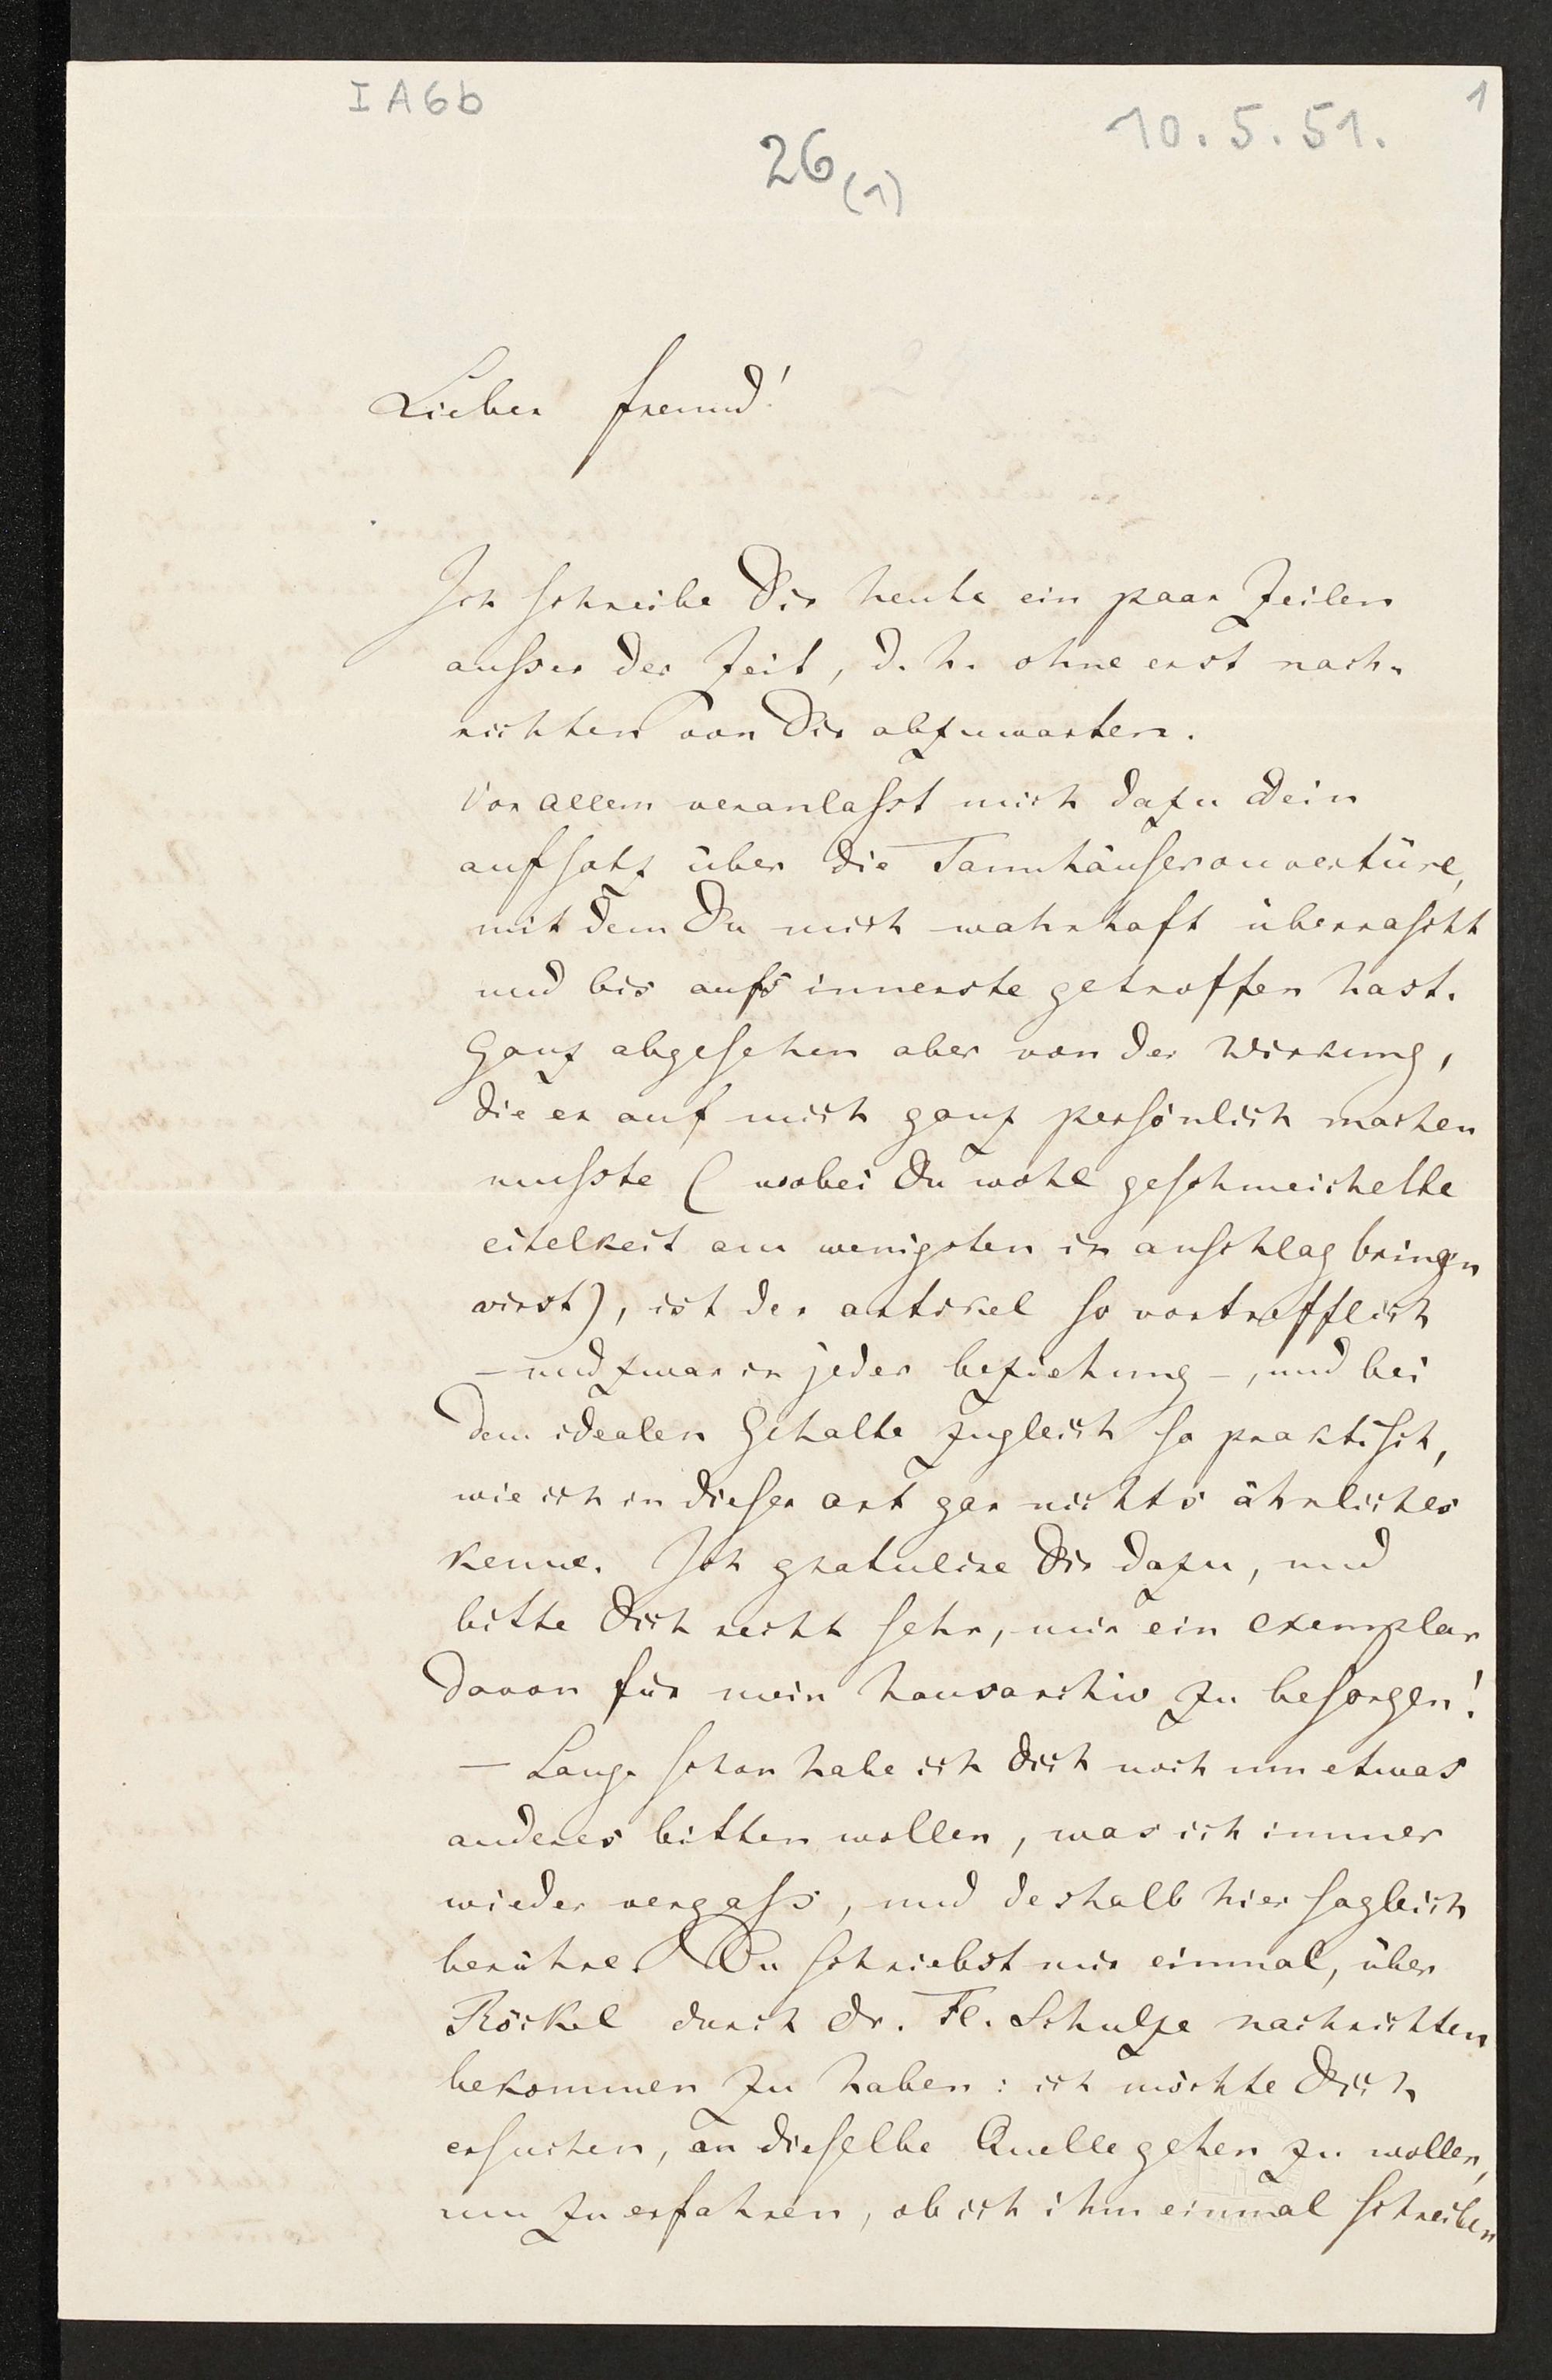 I A 6 b
1
10.5.51.
26 (1)
Lieber freund!
Ich schreibe Dir heute ein paar Zeilen
ausser der Zeit, d. h. ohne erst nach-
richten von Dir abzuwarten.
Vor allem veranlasst mich dazu Dein
aufsatz über die Tannhäuserouvertüre,
mit dem Du mich wahrhaft überrascht
und bis aufs innerste getroffen hast.
Ganz abgesehen aber von der Wirkung,
die er auf mich ganz persönlich machen
musste (wobei Du wohl geschmeichelte
eitelkeit am wenigsten in anschlag bringen
wirst), ist der artikel so vortrefflich
– und zwar in jeder beziehung –, und bei
dem idealen Gehalte zugleich so praktisch,
wie ich in dieser art gar nichts ähnliches
kenne. Ich gratulire Dir dazu, und
bitte Dich recht sehr, mir ein exemplar
davon für mein hausarchiv zu besorgen!
– Lange schon habe ich Dich noch um etwas
anderes bitten wollen, was ich immer
wieder vergass, und deshalb hier sogleich
berühre. Du schriebst mir einmal, über
Röckel durch Dr. Fl. Schulze nachrichten
bekommen zu haben: ich möchte Dich
ersuchen, an dieselbe Quelle gehen zu wollen,
um zu erfahren, ob ich ihm einmal schreiben